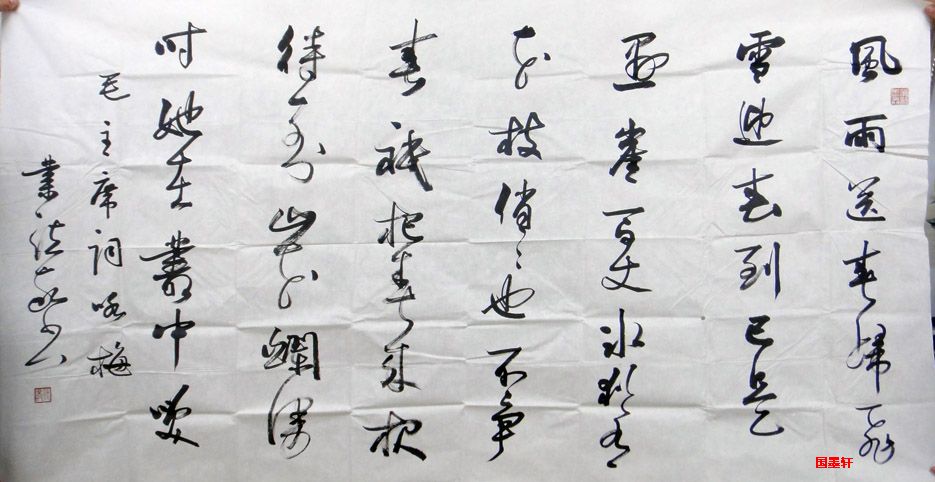 風雨送春歸飛
雪迎春到已是
懸崖百丈冰猶有
花枝俏〻也不爭
春祇把春來報
待到山花爛漫
時她在叢中笑
毛主席詞咏梅
業
国墨轩